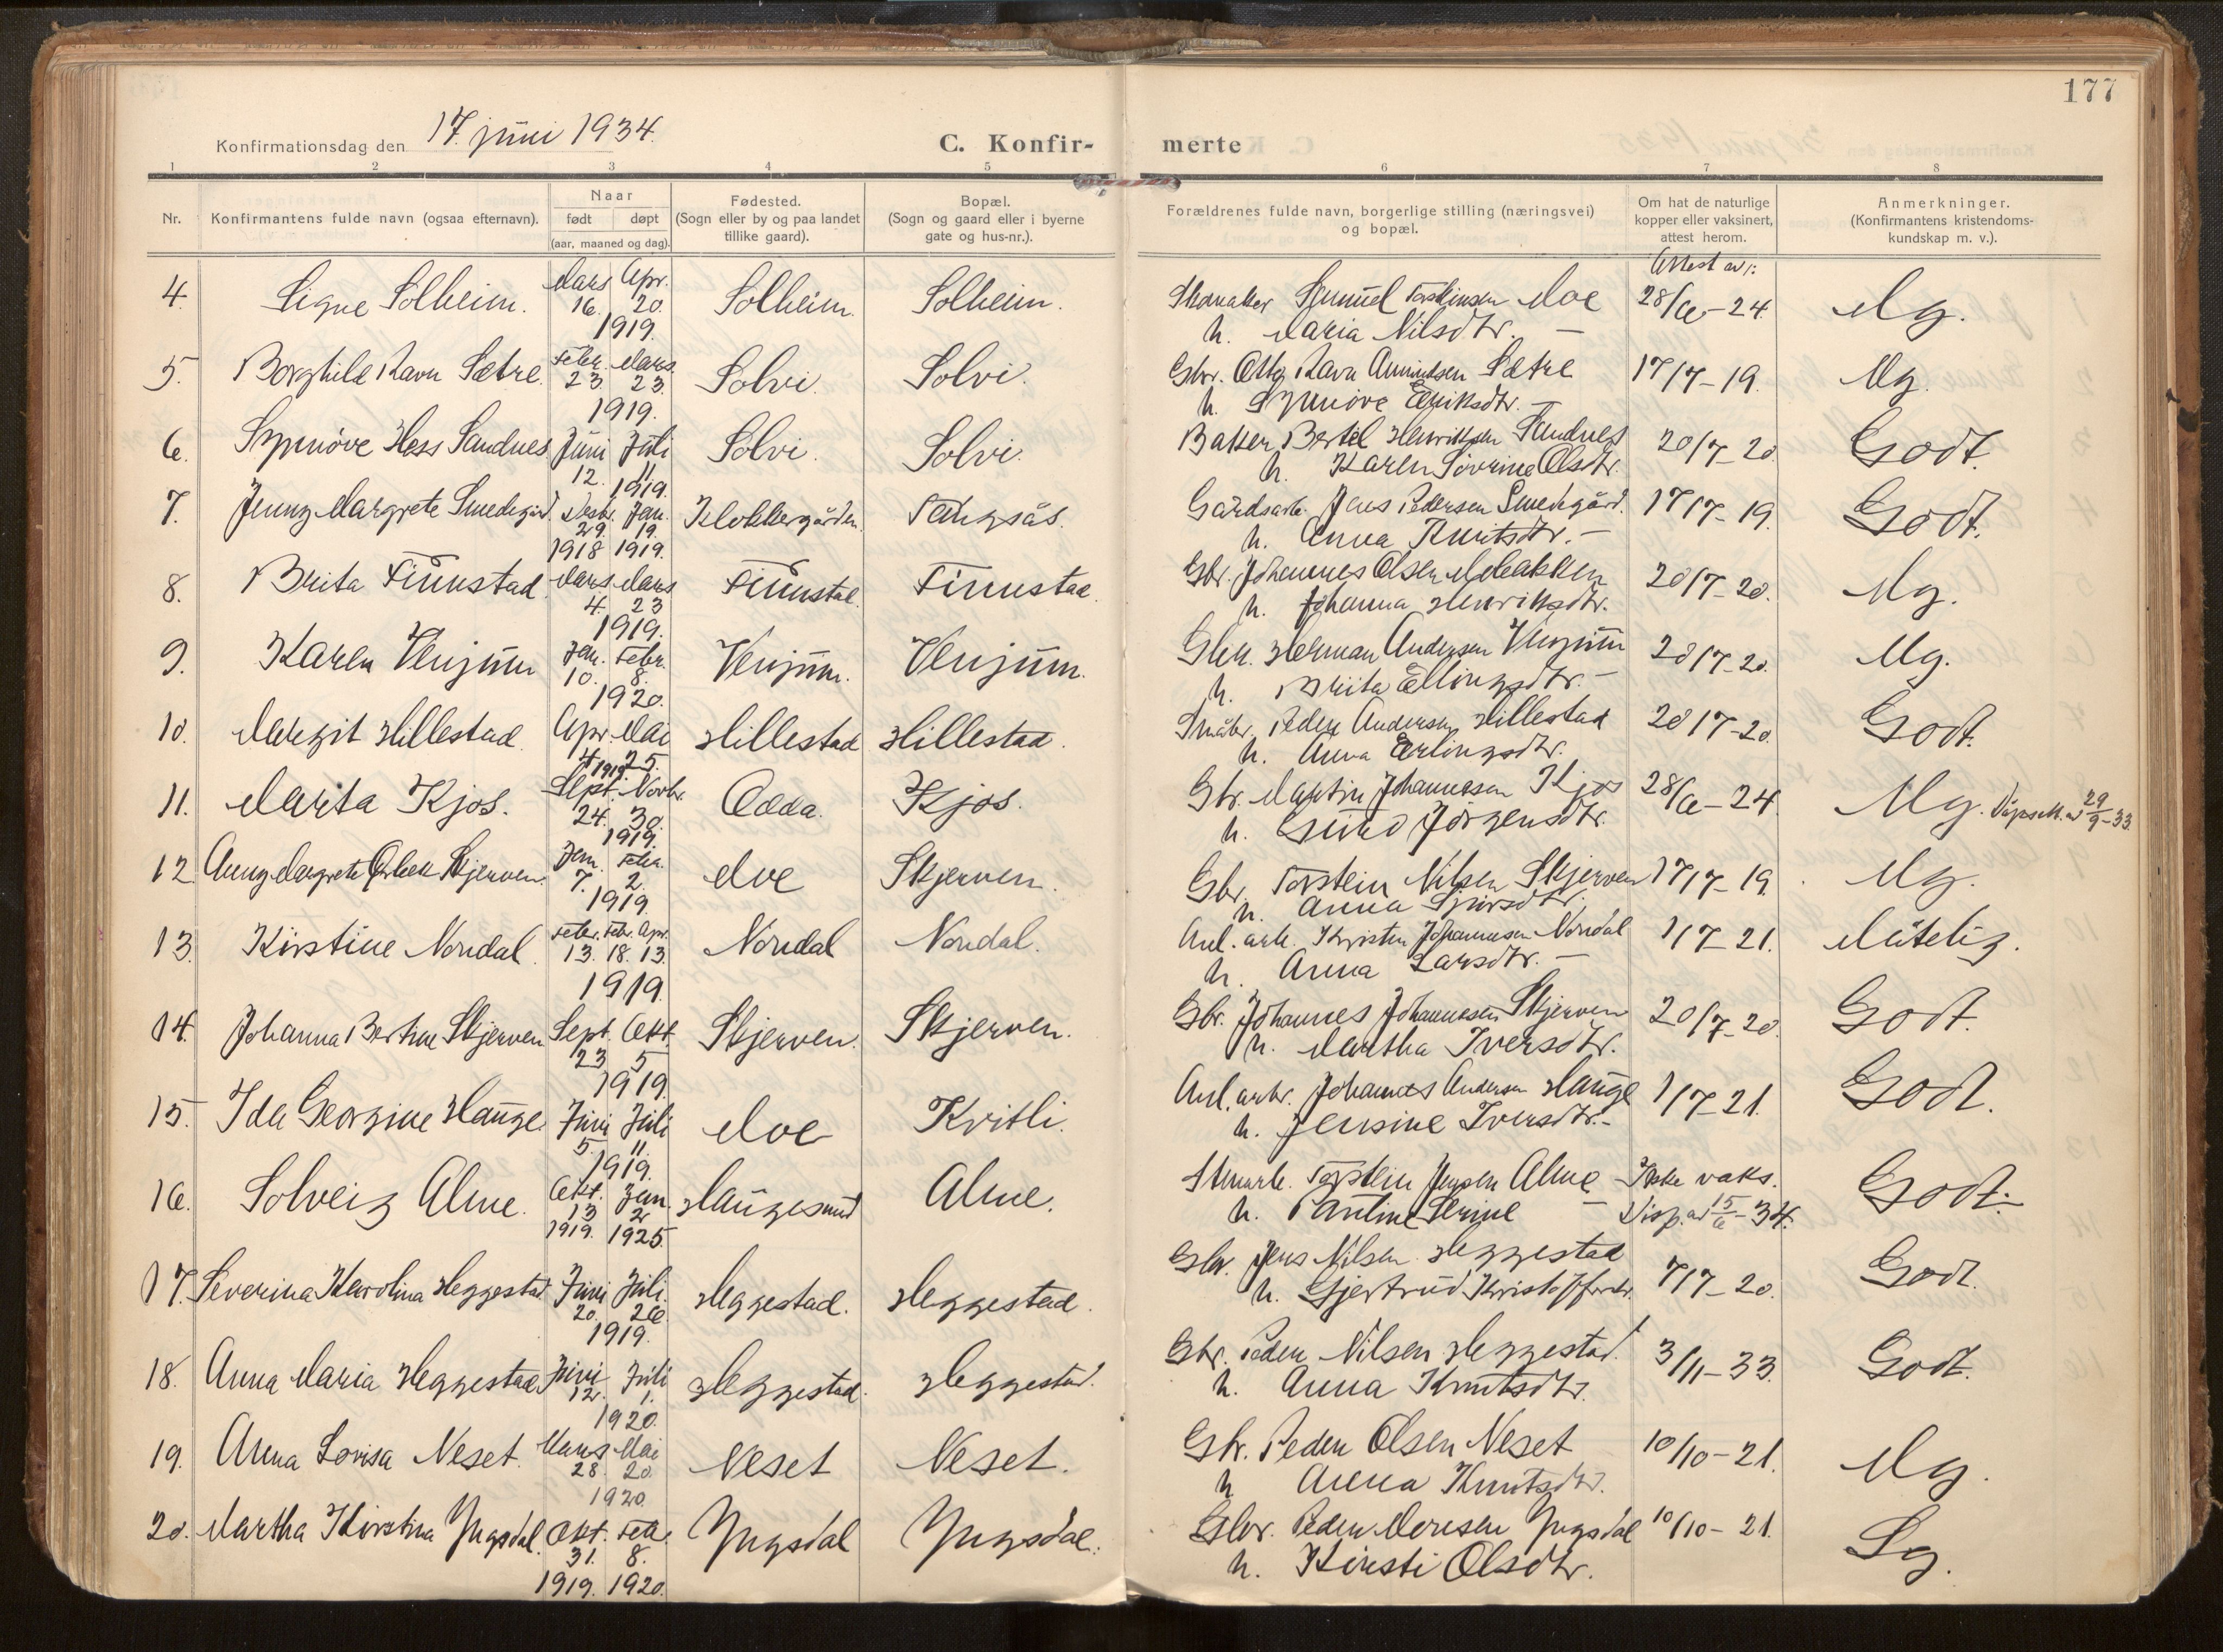 177
Konfirmationsdag den 17. juni 1934.
C. Konfir- merte
1 2 3 4 5 6 7 8
Nr.
Konfirmantens fulde navn (ogsaa efternavn).
Naar
født døpt
(aar, maaned og dag).
Fødested.
(Sogn eller by og paa landet
tillike gaard).
Bopæl.
(Sogn og gaard eller i byerne
gate og hus-nr.).
Forældrenes fulde navn, borgerlige stilling (næringsvei)
og bopæl.
Om hat de naturlige
kopper eller vaksinert,
attest herom.
Anmerkninger.
(Konfirmantens kristendoms-
kundskap m. v.).
Attest av:
4. Signe Solheim. Mars 16. Apr. 20. 1919. Solheim. Solheim. Skomaker Samuel Torsteinsen Moe 28/6-24. Mg.
h. Maria Nilsdtr. —
5. Borghild Ravn Sætre. Febr. 23 Mars 23. 1919. Solvi. Solvi. Gbr. Otto Ravn Amundsen Sætre 17/7-19. Mg.
h. Synnöve Eriksdtr. —
6. Synnöve Hess Sandnes Juni 12. Juli 11. 1919. Solvi. Solvi. Baker Bertel Henriksen Sandnes 20/7-20. Godt.
h. Karen Sövrine Olsdtr.
7. Jenny Margrete Smedegård. Desbr. 29. 1918 Jan. 19. 1919. Klokkergården. Tangsås. Gardsarb. Jens Pedersen Smedegård. 17/7-19. Godt.
h. Anna Knutsdtr. —
8. Brita Finnstad Mars 4. Mars 23 1919. Finnstad. Finnstad. Gbr. Johannes Olsen Melbakken 20/7-20. Mg.
h. Johanna Henriksdtr.
9. Karen Venjum Jan. 10. Febr. 8. 1920. Venjum. Venjum. Gbr. Herman Andersen Venjum 20/7-20. Mg.
h. Brita Ellingsdtr. —
10. Margit Hillestad Apr. 4 Mai 25. 1919. Hillestad Hillestad. Småbr. Peder Andersen Hillestad 20/7-20. Godt.
h. Anna Erlingsdtr.
11. Marita Kjos. Sept. 24. Novbr. 30. 1919. Odda. Kjos. Gbr. Martin Johannesen Kjos 28/6-24. Mg. 29/9-33.
h. Guro Jörgensdtr.
12. Anny Margrete Skjerven. Jan. 7. Febr. 2. 1919 Moe Skjerven. Gbr. Torstein Nilsen Skjerven 17/7-19. Mg.
h. Anna
13. Kirstine Nondal. Febr. 13. Febr. 18. Apr. 13. 1919. Nondal Nondal. Anl. arb. Kristen Johannesen Nondal 1/7-21. Måtelig.
h. Anna Larsdtr. —
14. Johanna Bertine Skjerven Sept. 23 Okt. 5. 1919. Skjerven. Skjerven. Gbr. Johannes Johannesen Skjerven 20/7-20. Godt.
h. Martha Iversdtr.
15. Ida Georgine Hauge. Juni 5. Juli 11. 1919. Moe Kvitli. Anl. arb. Johannes Andersen Hauge 1/7-21. Godt.
h. Jensine Iversdtr. —
16. Solveig Alme. Okt. 13 1919. Jan. 2 1925. Haugesund Alme. Torstein Jensen Alme Ikke vaks. Godt.
h. Pauline Serine — Disp. av 15/6-34.
17. Severina Karolina Heggestad Juni 20. Juli. 26 1919. Heggestad. Heggestad. Gbr. Jens Nilsen Heggestad 7/7-20. Godt.
h. Gjertrud Kristoffersdtr.
18. Anna Maria Heggestad. Juni 12. Juli 1. 1920. Heggestad. Heggestad. Gbr. Peder Nilsen Heggestad. 3/11-33. Godt.
h. Anna Knutsdtr.
19. Anna Lovisa Neset. Mars 28. Mai 20. 1920. Neset Neset. Gbr. Peder Olsen Neset 10/10-21. Mg.
h. Anna Knutsdtr.
20. Martha Kirstina Yngsdal. Okt. 31. 1919. Febr. 8. 1920. Yngsdal Yngsdal. Gbr. Peder Monsen Yngsdal 10/10-21. Sg.
h. Kirsti Olsdtr.